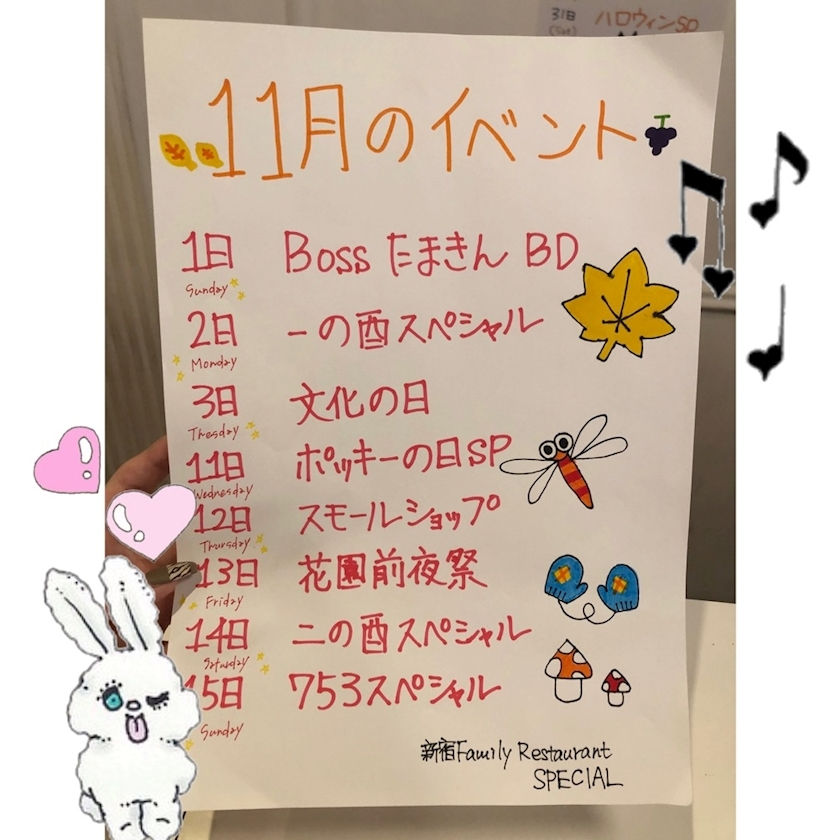 31日 ハロウィンSP
(Sat)
11月のイベント
1日 Boss たまきん BD
Sunday
2日 一の酉スペシャル
Monday
3日 文化の日
Thesday
11日 ポッキーの日SP
Wednesday
12日 スモールショップ
Thursday
13日 花園前夜祭
Friday
14日 二の酉スペシャル
Saturday
15日 753スペシャル
Sunday
新宿Family Restaurant
SPECIAL